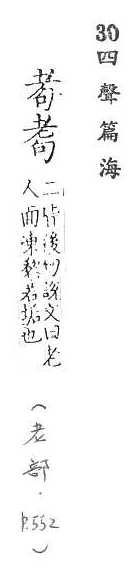 30四聲篇海
耇
二皆後切說文曰老
人面凍黎若垢也
(老部．P.552)